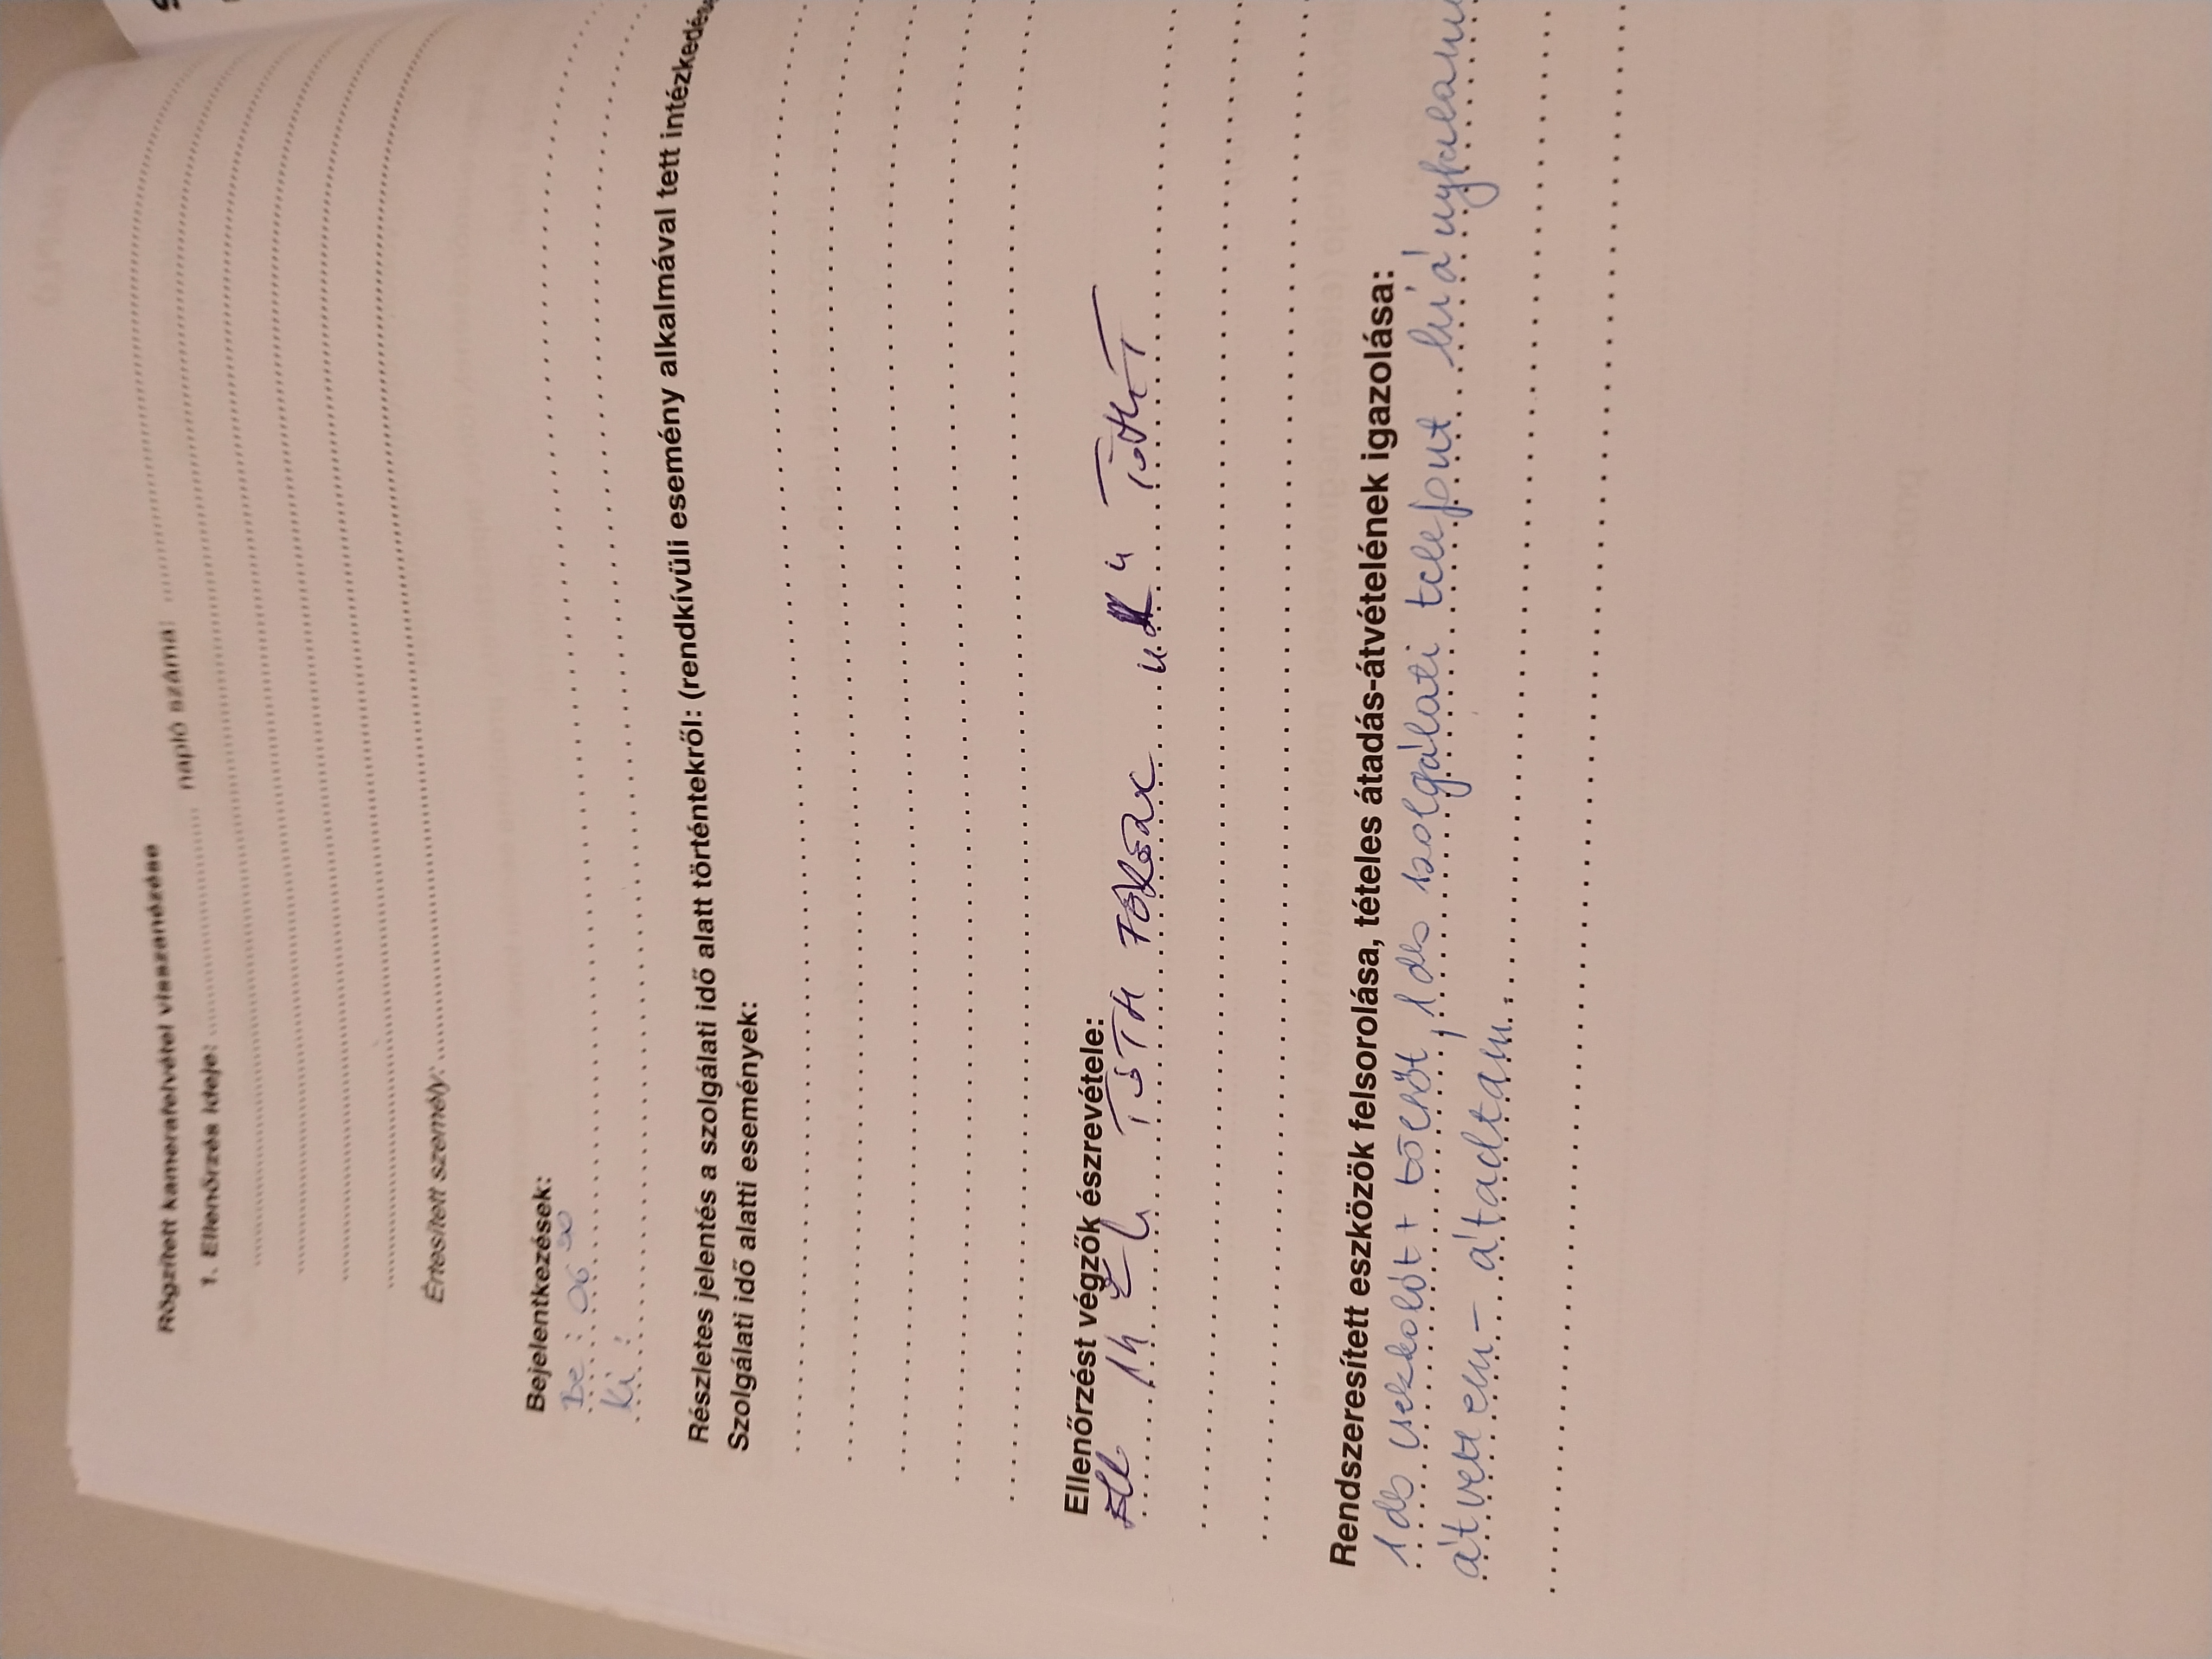 Rögzített kamerafelvétel visszanézése
1. Ellenőrzés ideje: napló száma:
Értesített személy:
Bejelentkezések:
be: 06 30
ki:
Részletes jelentés a szolgálati idő alatt történtekről: (rendkívüli esemény alkalmával tett intézkedése
Szolgálati idő alatti események:
Ellenőrzést végzők észrevétele:
14 TÓTH
Rendszeresített eszközök felsorolása, tételes átadás-átvételének igazolása:
1 db csekkolót + töltőt, 1 db szolgálati telefont hiánytalanu
átvettem - átadtam.